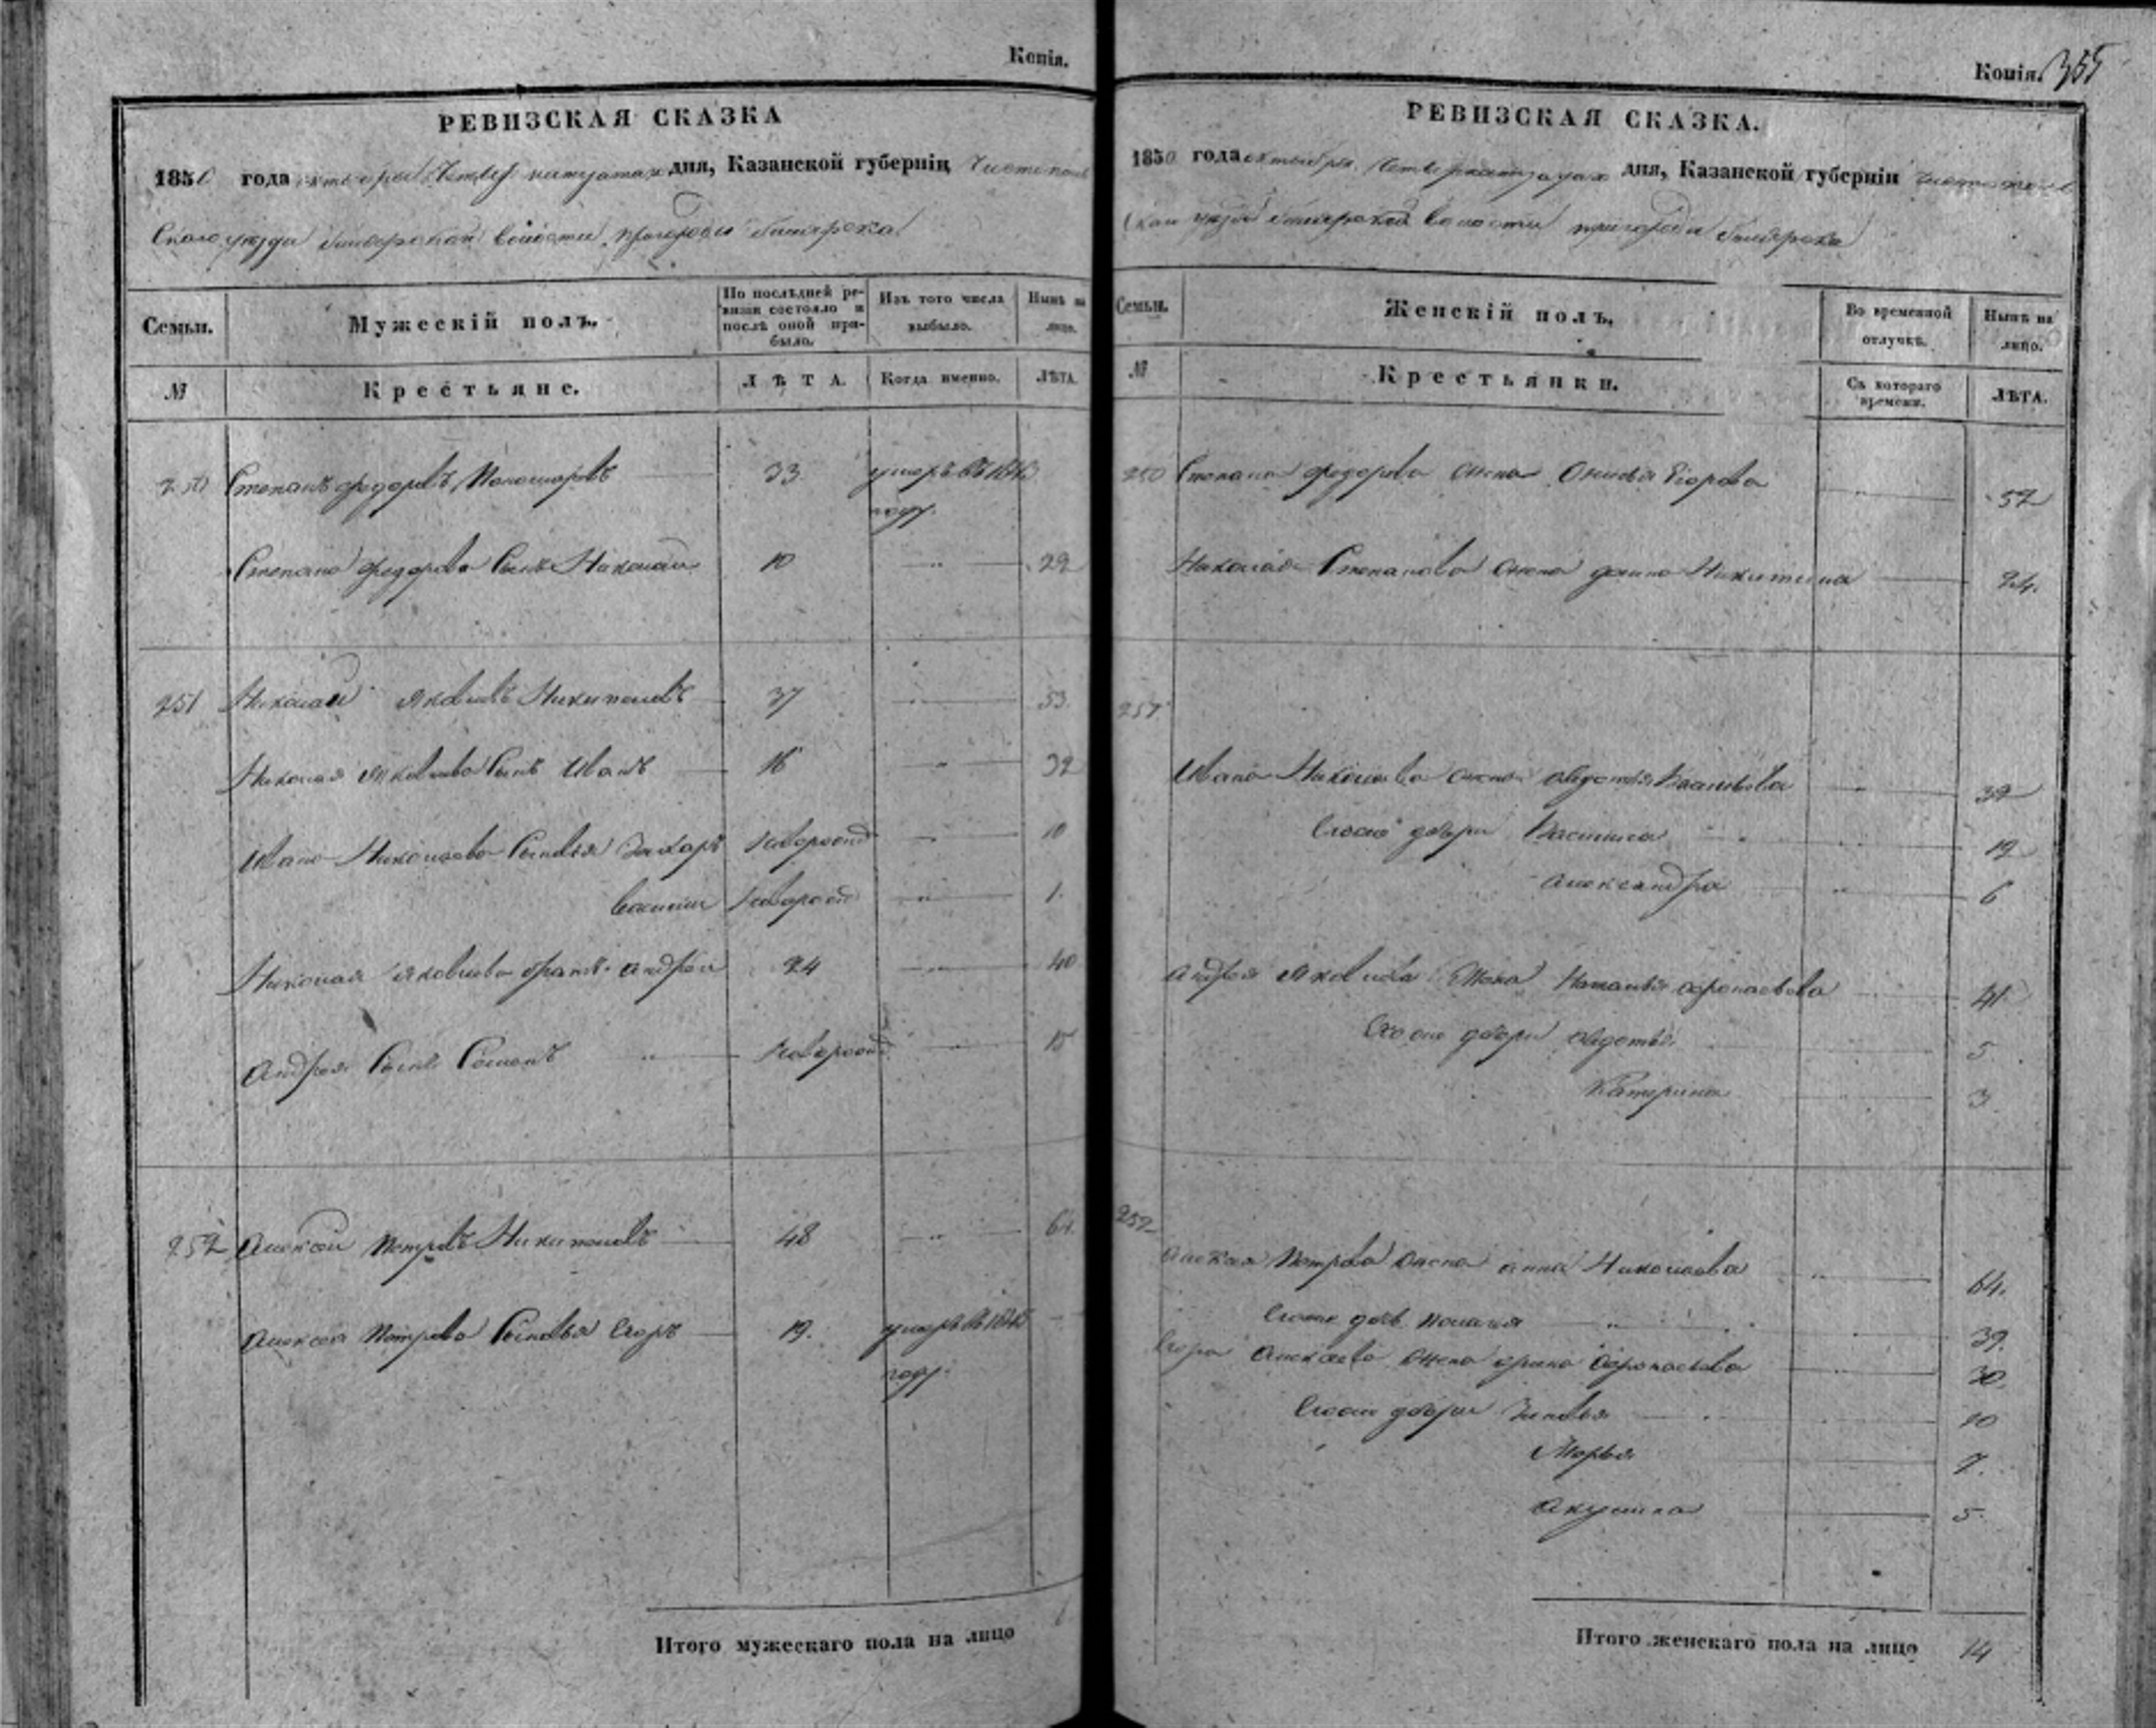 Копія.
РЕВИЗСКАЯ СКАЗКА
1850 года октября Четыр натцатаго дня, Казанской губерніи Чистополь
скаго уезда билярской волости пригорода билярска
Семьи.
Мужескій полъ.
По послѣдней ре-
визіи состояло и
послѣ оной при-
было.
Изъ того числа
выбыло.
Нынѣ на
лицо.
№
Крестьяне.
ЛѢТА.
Когда именно.
ЛѢТА.
250 Степанъ федоровъ 33 умеръ въ 1843
году.
Степана федорова Сынъ Николай 10 — „ — 29
251 Николай Яковлевъ 37 — „ — 53
Николая Яковлева Сынъ Иванъ 16 — „ — 32
Ивана Николаева Сыновья Захаръ новорожд — „ — 10
Василий новорожд — „ — 1.
Николая Яковлева братъ Андрей 24 — „ — 40
Андрея Сынъ Семенъ „ новорожд — „ — 15
252 Алексей Петровъ 48 — „ — 64
Алексея Петрова Сыновья Егоръ 19.
году.
Итого мужескаго пола на лицо
Копія. 355
РЕВИЗСКАЯ СКАЗКА.
1850 года октября Четырнатцатаго дня, Казанской губерніи Чистополь
скаго уезда билярской волости пригорода билярска
Семьи.
Женскій полъ.
Во временной
отлучкѣ.
Нынѣ на
лицо.
№
Крестьянки.
Съ котораго
времени.
ЛѢТА.
250 Степана федорова жена Егорова — „ — 57
Николая Степанова жена Никитина — 24.
251
Ивана Николаева жена авдотья — „ — 32
Егоже дочери Василиса — „ — 12
александра — „ — 6
андрея Яковлева Жена Наталья — 41
Егоже дочери авдотья 5
Катерина 3
252
алексея Петрова жена анна Николаева — „ — 64.
Егоже дочь — „ — 39.
Егора Алексеева жена арина 30.
Егоже дочери Зиновья — 10
Марья 7.
акулина 5.
Итого женскаго пола на лицо 14